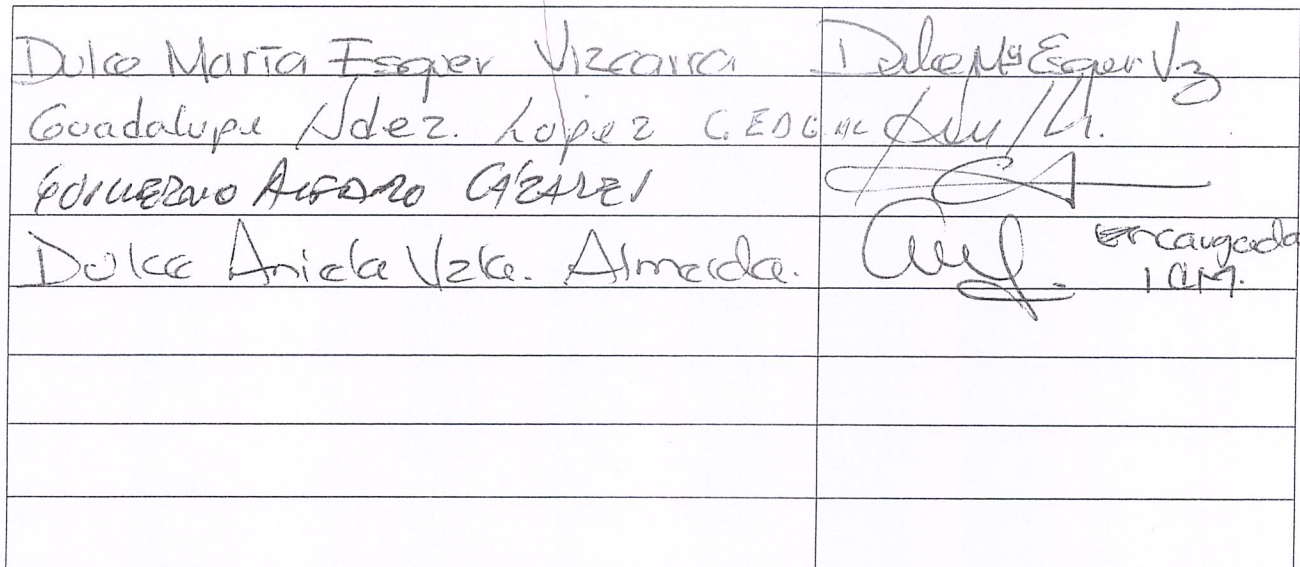 Dulce María Esquer Vizcarra Dulce Mª Esquer Vz
Guadalupe Ndez. López
GUILLERMO ALFARO CÁZARES
Dulce Aniela Vzla. Almeida. encargada
I.C.M.